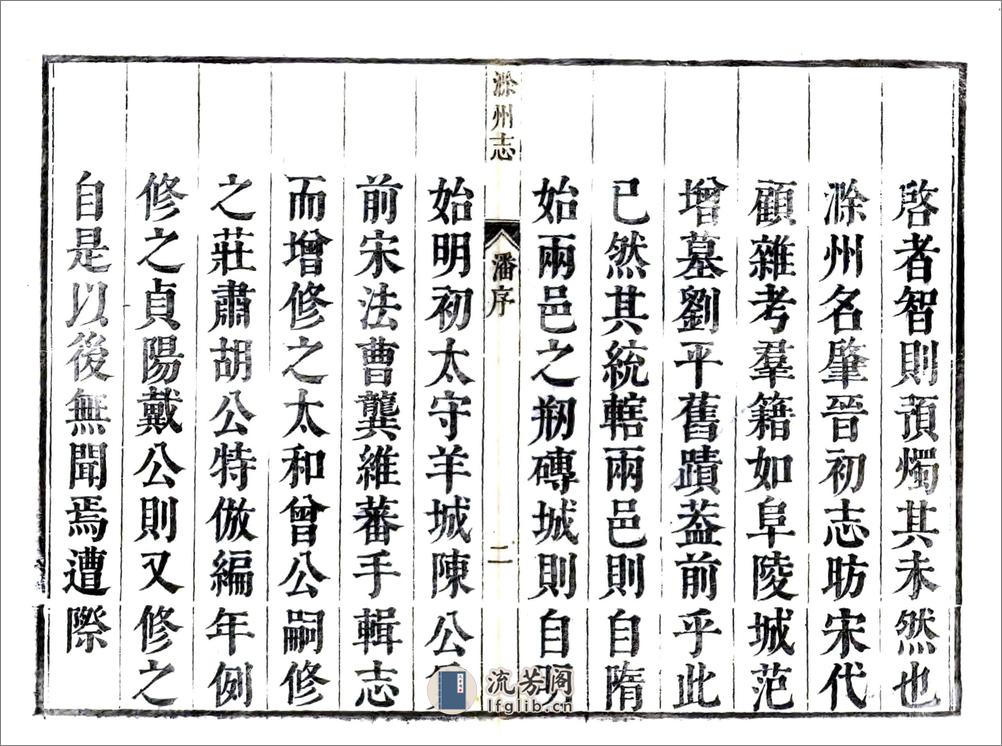 啓者智則預燭其未然也
滁州名肇晉初志昉宋代
顧雜考羣籍如阜陵城范
增墓劉平舊蹟葢前乎此
已然其統轄兩邑則自隋
始兩邑之剏磚城則自明
滁州志
潘序
二
始明初太守羊城陳公
前宋法曹龔維蕃手輯志
而增修之太和曾公嗣修
之莊肅胡公特倣編年例
修之貞陽戴公則又修之
自是以後無聞焉遭際
流芳阁
lfglib.cn